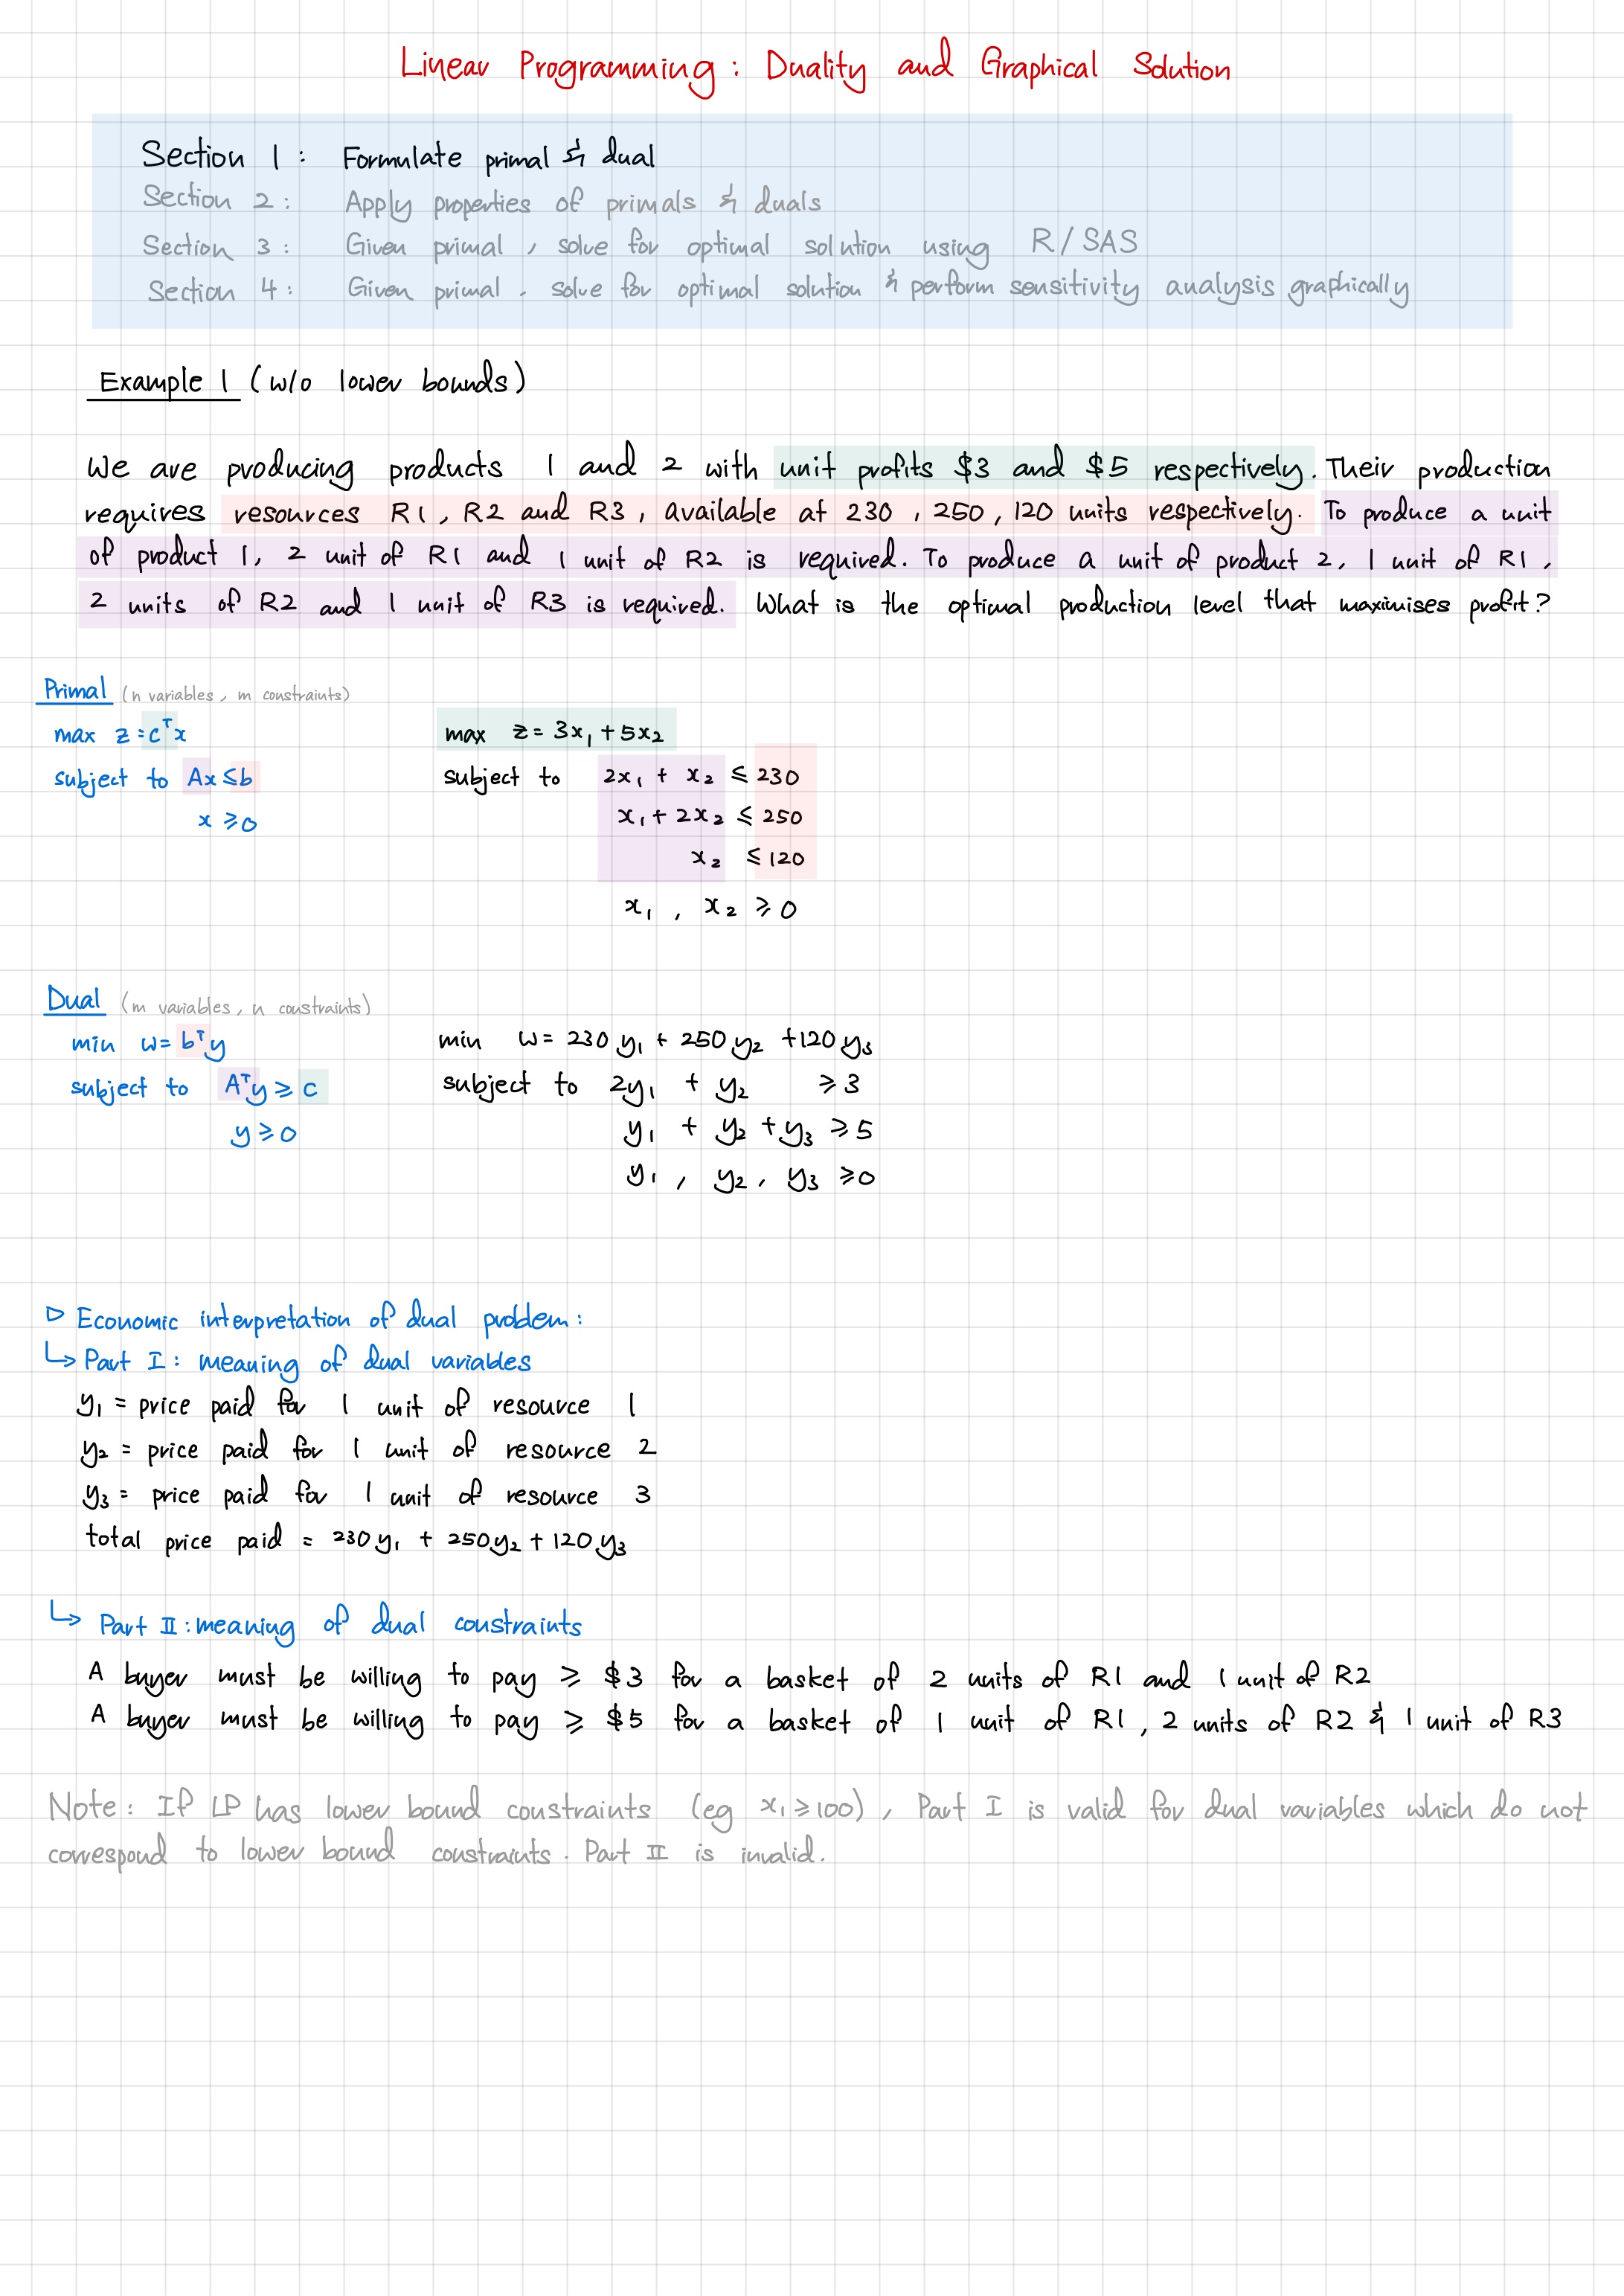 Linear Programming: Duality and Graphical Solution
Section 1: Formulate primal & dual
Section 2: Apply properties of primals & duals
Section 3: Given primal, solve for optimal solution using R/SAS
Section 4: Given primal, solve for optimal solution & perform sensitivity analysis graphically
Example 1 (w/o lower bounds)
We are producing products 1 and 2 with unit profits $3 and $5 respectively. Their production
requires resources R1, R2 and R3, available at 230, 250, 120 units respectively. To produce a unit
of product 1, 2 unit of R1 and 1 unit of R2 is required. To produce a unit of product 2, 1 unit of R1,
2 units of R2 and 1 unit of R3 is required. What is the optimal production level that maximises profit?
Primal (n variables, m constraints)
max z = cᵀx
subject to Ax ≤ b
x ≥ 0
max z = 3x₁ + 5x₂
subject to 2x₁ + x₂ ≤ 230
x₁ + 2x₂ ≤ 250
x₂ ≤ 120
x₁, x₂ ≥ 0
Dual (m variables, n constraints)
min w = bᵀy
subject to Aᵀy ≥ c
y ≥ 0
min w = 230y₁ + 250y₂ + 120y₃
subject to 2y₁ + y₂ ≥ 3
y₁ + y₂ + y₃ ≥ 5
y₁, y₂, y₃ ≥ 0
▷ Economic interpretation of dual problem:
↳ Part I: meaning of dual variables
y₁ = price paid for 1 unit of resource 1
y₂ = price paid for 1 unit of resource 2
y₃ = price paid for 1 unit of resource 3
total price paid = 230y₁ + 250y₂ + 120y₃
↳ Part II: meaning of dual constraints
A buyer must be willing to pay ≥ $3 for a basket of 2 units of R1 and 1 unit of R2
A buyer must be willing to pay ≥ $5 for a basket of 1 unit of R1, 2 units of R2 & 1 unit of R3
Note: If LP has lower bound constraints (eg x₁ ≥ 100), Part I is valid for dual variables which do not
correspond to lower bound constraints. Part II is invalid.